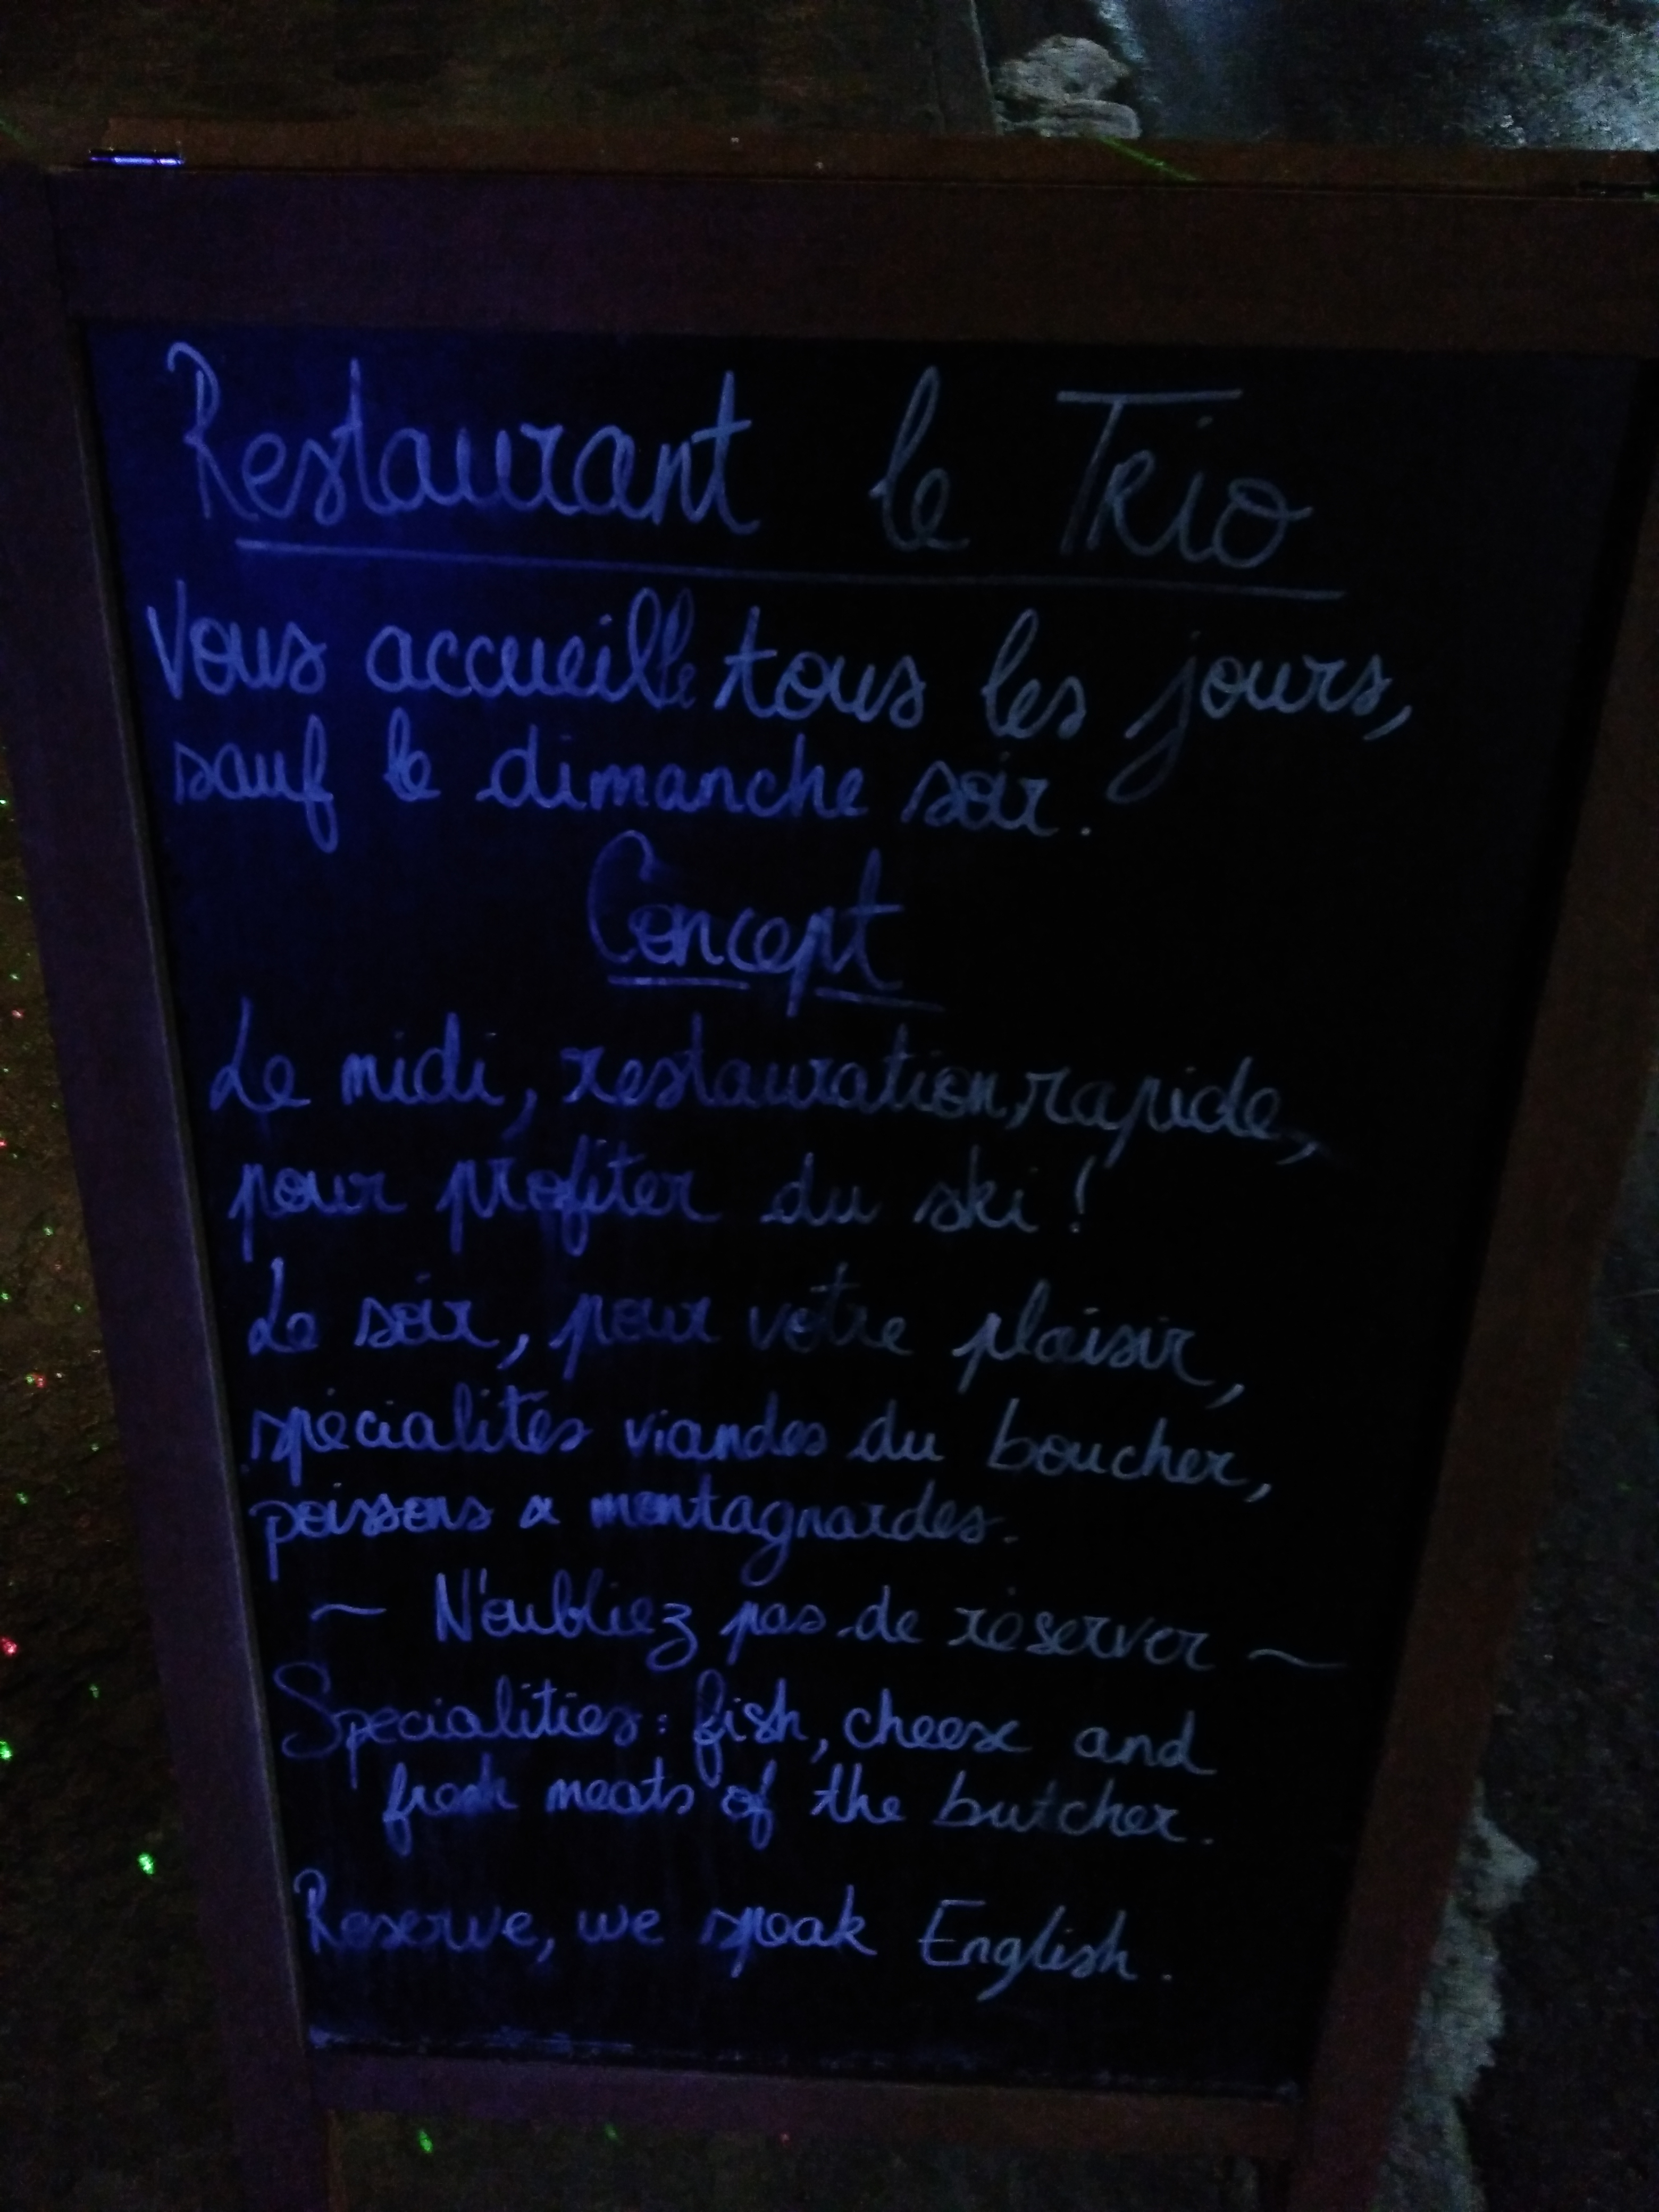 Restaurant le Trio
Vous accueille tous les jours,
sauf le dimanche soir.
Concept
Le midi, restauration rapide,
pour profiter du ski !
Le soir, pour votre plaisir,
spécialités viandes du boucher,
poissons & montagnardes.
~ N'oubliez pas de réserver ~
Specialities: fish, cheese and
fresh meats of the butcher.
Reserve, we speak English.